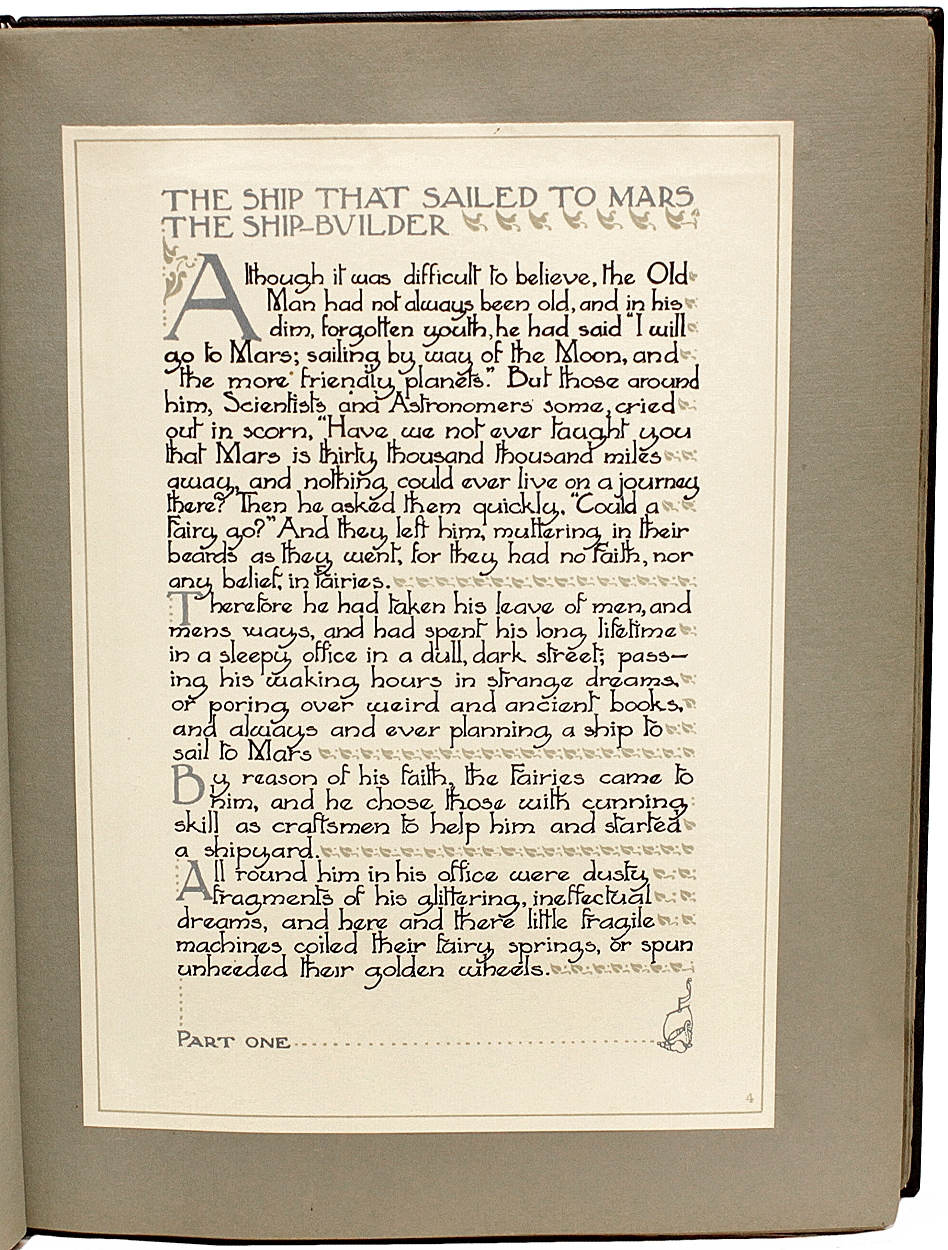 THE SHIP THAT SAILED TO MARS
THE SHIP-BUILDER
Although it was difficult to believe, the Old
Man had not always been old, and in his
dim, forgotten youth, he had said "I will
go to Mars; sailing by way of the Moon, and
the more friendly planets." But those around
him, Scientists and Astronomers some, cried
out in scorn, "Have we not ever taught you
that Mars is thirty thousand thousand miles
away, and nothing could ever live on a journey
there?" Then he asked them quickly, "Could a
Fairy go?" And they left him, muttering in their
beards as they went, for they had no faith, nor
any belief, in fairies.
Therefore he had taken his leave of men, and
mens ways, and had spent his long lifetime
in a sleepy office in a dull, dark street; pass-
ing his waking hours in strange dreams,
or poring over weird and ancient books,
and always and ever planning a ship to
sail to Mars
By reason of his faith, the Fairies came to
him, and he chose those with cunning
skill as craftsmen to help him and started
a shipyard.
All round him in his office were dusty
fragments of his glittering, ineffectual
dreams, and here and there little fragile
machines coiled their fairy springs, or spun
unheeded their golden wheels.
PART ONE
4